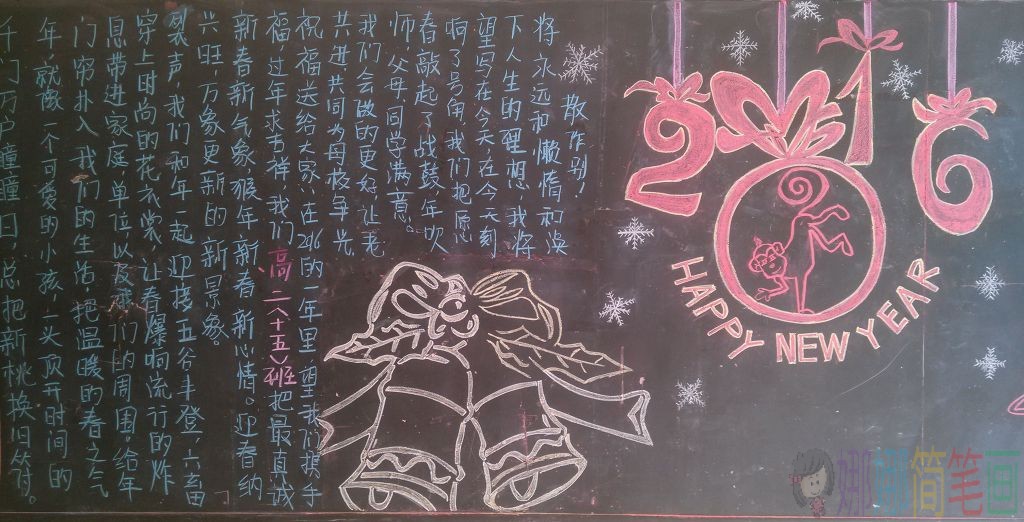 千门万户曈曈日，总把新桃换旧符。
年，就像一个可爱的小孩，一头顶开时间的
门 扑入我们的生活 把温暖的春之气
息带进家庭，单位以及我们的周围。给年
穿上时尚的花衣裳，让春爆响流行的炸
裂声，我们和年一起迎接五谷丰登，六畜
兴旺，万象更新的新景象。
新春新气象，猴年新春新心情。迎春纳
福，过年求吉祥，我们高二(十五)班把最真诚
祝福送给大家，在2016的一年里 愿我们携手
共进共同为母校争光
我们会做的更好，让老
师，父母，同学满意。
春敲起了战鼓，年吹
响了号角，我们把愿
望写在今天在今天刻
下人生的理想，我将
将永远和懒惰和涣
散作别！
2016
HAPPY NEW YEAR
简笔画